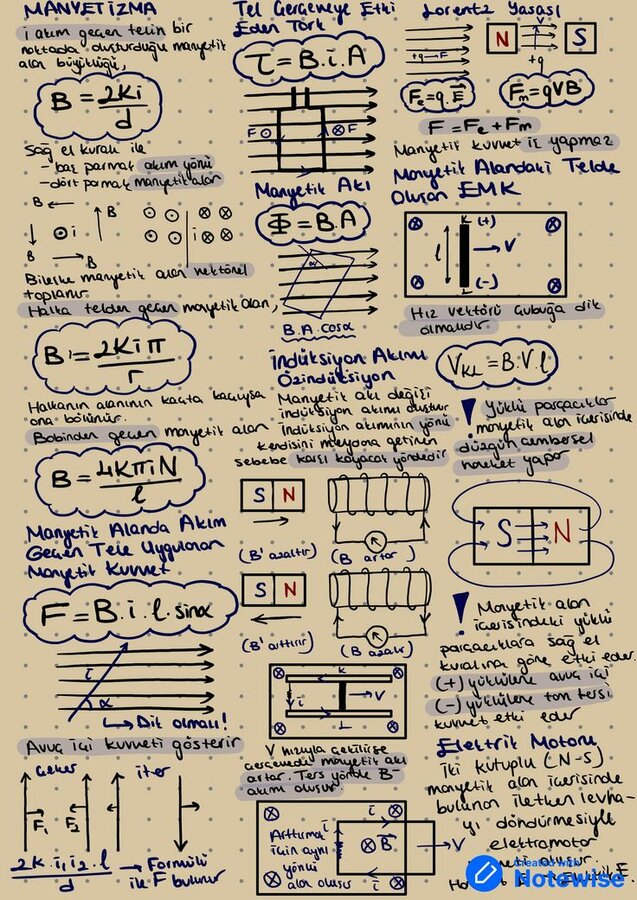 MANYETİZMA
i akım geçen telin bir
noktada oluşturduğu manyetik
alan büyüklüğü,
B = 2Ki/d
Sağ el kuralı ile
- baş parmak akım yönü
- dört parmak manyetik alan
B
B
i
i
B
B
Bileşke manyetik alan vektörel
toplanır
Halka telden geçen manyetik alan,
B = 2Kiπ/r
Halkanın alanının kaçta kaçıysa
ona bölünür.
Bobinden geçen manyetik alan
B = 4KπiN/l
Manyetik Alanda Akım
Geçen Tele Uygulanan
Manyetik Kuvvet
F = B.i.l.sinα
i
α
Dik olmalı!
Avuç içi kuvveti gösterir
çeker
iter
F₁
F₂
2K.i₁i₂.l/d
Formülü
ile F bulunur
Tel Çerçeveye Etki
Eden Tork
τ = B.i.A
F
F
Manyetik Akı
Φ = B.A
α
B.A.cosα
İndüksiyon Akımı
Özindüksiyon
Manyetik akı değişi
indüksiyon akımı oluştur
İndüksiyon akımının yönü
kendisini meydana getiren
sebebe karşı koyacak yöndedir
S N
(B' azaltır)
(B artar)
S N
(B' arttırır)
(B azalır)
K
i
V
L
V hızıyla çekilirse
çerçevedeki manyetik akı
artar. Ters yönde B-
akım oluşur
Arttırma
için aynı
yönlü
alan oluşur
i
B
V
i
Lorentz Yasası
+q F
N
V
S
+q
Fe = q.E
Fm = qVB
F = Fe + Fm
Manyetik kuvvet iş yapmaz
Manyetik Alandaki Telde
Oluşan EMK
K (+)
l
V
L (-)
Hız vektörü çubuğa dik
olmalıdır
VKL = B.V.l
! Yüklü parçacıklar
manyetik alan içerisinde
düzgün çembersel
hareket yapar
S N
! Manyetik alan
içerisindeki yüklü
parçacıklara sağ el
kuralına göre etki eder.
(+) yüklülere avuç içi
(-) yüklülere tam tersi
kuvvet etki eder
Elektrik Motoru
İki kutuplu (N-S)
manyetik alan içerisinde
bulunan iletken levha-
yı döndürmesiyle
elektromotor
oluşur.
Created with
Notewise